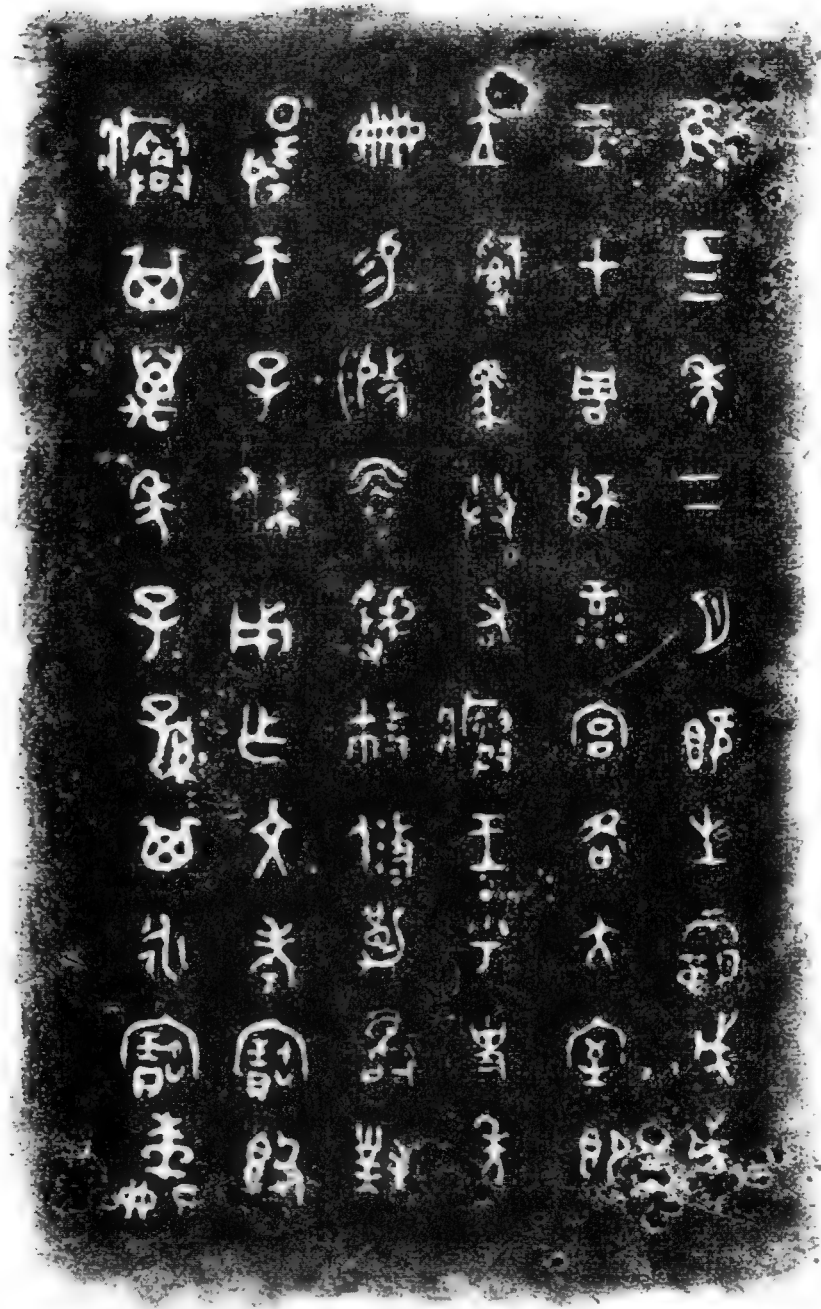 隹四年二月既生霸戊戌
王才周師彔宮各大室即
立司馬共右𤼈王乎史年
冊易□□虢□攸勒敢對
揚天子休用乍文考寶簋
𤼈其萬年子孫其永寶木羊冊